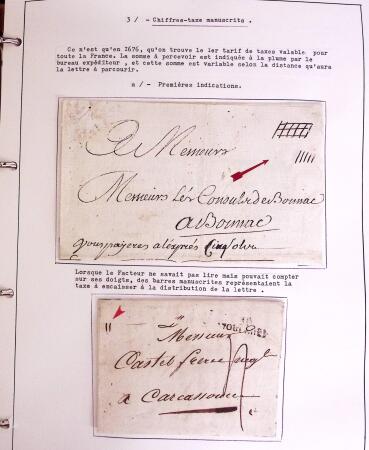 3 / - Chiffres-taxe manuscrits .
Ce n'est qu'en 1676, qu'on trouve le 1er tarif de taxes valable pour
toute la France. La somme à percevoir est indiquée à la plume par le
bureau expéditeur , et cette somme est variable selon la distance qu'aura
la lettre à parcourir.
a / - Premières indications.
A Messieurs
Messieurs les Consuls de Bonnac
A Bonnac
vous payeres alexprés Cinq sols
Lorsque le Facteur ne savait pas lire mais pouvait compter
sur ses doigts, des barres manuscrites représentaient la
taxe à encaisser à la distribution de la lettre .
Messieur
Castel frere
a Carcassonne